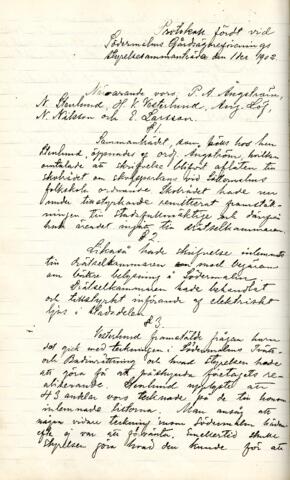 Protokoll fördt vid
Södermalms Gårdsägareförenings
styrelsesammanträde den 1 1902.
Närvarande voro, P. A. Ångström,
N. Stenlund, H. V. Vesterlund, Aug. Löf,
N. Nilsson och E. Larsson.
§ 1.
Sammanträdet, som hölls hos herr
Stenlund, öppnades af ordf. Ångström, hvilken
omtalade att skrifvelse blifvit aflåten till
skolrådet om skolsparkassa vid Södermalms
folkskola ordnande. Skolrådet hade nu
under tillstyrkande remitterat framställ-
ningen till Stadsfullmäktige och därifrån
hade ärendet ingått till drätselkammaren.
§ 2.
Likaså hade skrifvelse inlemnats
till Drätselkammaren om med begäran
om bättre belysning å Södermalm.
Drätselkammaren hade behandlat
och tillstyrkt införande af elektriskt
ljus i stadsdelen.
§ 3.
Vesterlund framstälde frågan huru
det gick med teckningen i Södermalms Tvätt-
och Badinrättning och hvad styrelsen hade
att göra för att påskynda företagets rea-
liserande. Stenlund upplyste att
43 andelar voro tecknade på de till honom
inlemnade listorna. Man ansåg att
någon vidare teckning inom Södermalm
ej var att förvänta. Emellertid skulle
styrelsen göra hvad den kunde för att